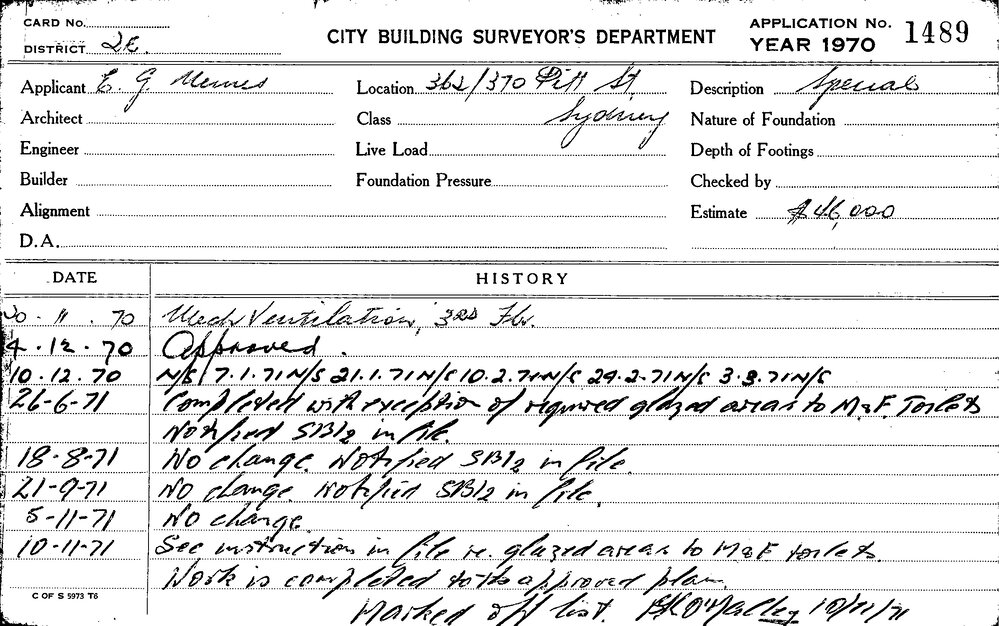 CARD No.
DISTRICT 2E.
CITY BUILDING SURVEYOR'S DEPARTMENT
APPLICATION No. 1489
YEAR 1970
Applicant E. G.
Location 362/370 Pitt St,
Description Special
Architect
Class Sydney
Nature of Foundation
Engineer
Live Load
Depth of Footings
Builder
Foundation Pressure
Checked by
Alignment
Estimate $46,000
D.A.
DATE HISTORY
30. 11. 70 Mech Ventilation, 3RD Flr.
4. 12. 70 Approved.
10. 12. 70 N/S 7.1.71 N/S 21.1.71 N/S 10.2.71 N/S 24.2.71 N/S 3.3.71 N/S
26-6-71 Completed with exception of required glazed areas to M&F. Toilets
Notified SB12 in file.
18-8-71 No change. Notified SB12 in file.
21-9-71 No change Notified SB12 in file.
5-11-71 No change.
10-11-71 See instruction in file re. glazed areas to M&F toilets.
Work is completed to approved plan.
Marked off list. O'Malley 10/11/71
C OF S 5973 T6